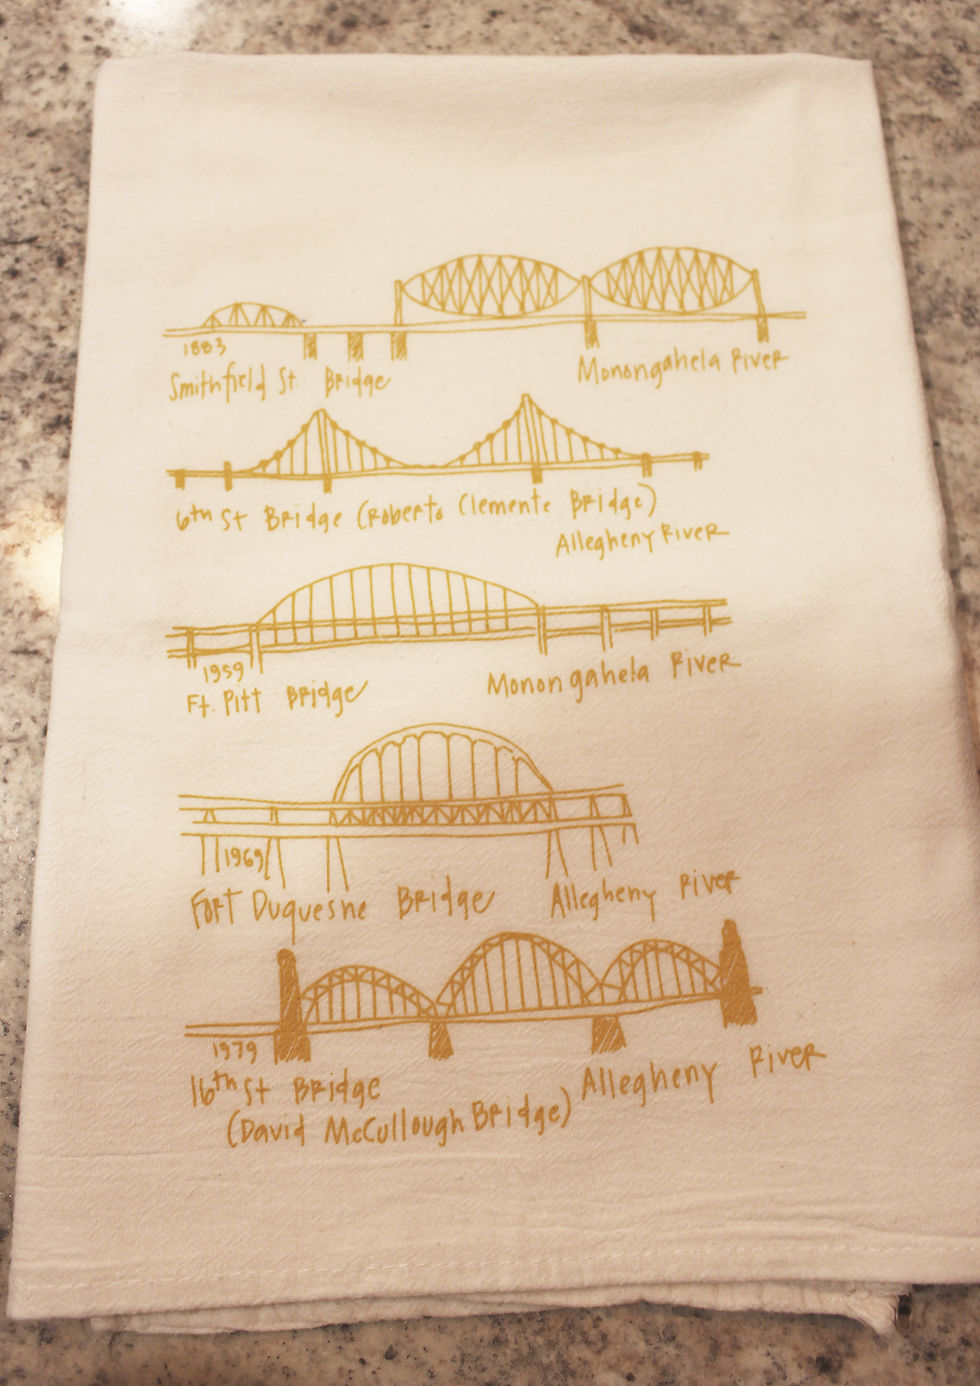 1883
Smithfield St. Bridge
Monongahela River
6th St Bridge (Roberto Clemente Bridge)
Allegheny River
1959
Ft. Pitt Bridge
Monongahela River
1969
Fort Duquesne Bridge
Allegheny River
1979
16th St Bridge
(David McCullough Bridge)
Allegheny River